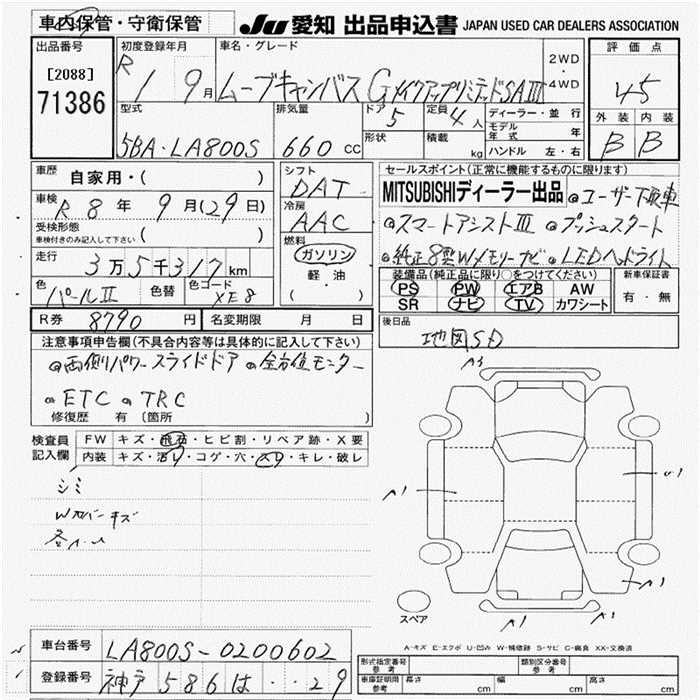 車内保管・守衛保管
JU 愛知 出品申込書 JAPAN USED CAR DEALERS ASSOCIATION
出品番号
[2088]
71386
初度登録年月
R 1 9月
車名・グレード
ムーブキャンバス Gメイクアップリミテッド SAⅢ
2WD
・
4WD
評価点
4.5
外装 内装
B B
型式
5BA・LA800S
排気量
660 cc
ドア
5
形状
定員
4人
積載
kg
ディーラー・並行
モデル年式 年
ハンドル 左・右
車歴
自家用・( )
車検 R 8年 9月(29日)
受検形態
車検付きのみ記入して下さい ( )
走行
3万5千317km
色 パールⅡ 色替 色コード XE8
シフト
DAT
冷房
AAC
燃料
ガソリン
軽・油
( )
セールスポイント(正常に機能するものに限ります)
MITSUBISHIディーラー出品 ◎ユーザー下取車
◎スマートアシストⅢ ◎プッシュスタート
◎純正8型Wメモリーナビ ◎LEDヘッドライト
装備品(純正品に限り○をつけてください)
PS PW エアB AW
SR ナビ TV カワシート
新車保証書
有・無
R券 8790円 名変期限 月 日
後日品
地図SD
注意事項申告欄(不具合内容等は具体的に記入して下さい)
◎両側パワースライドドア ◎全方位モニター
◎ETC ◎TRC
修復歴 有 〔箇所 〕
検査員
記入欄
FW キズ・飛石・ヒビ割・リペア跡・X要
内装 キズ・汚れ・コゲ・穴・スレ・キレ・破レ
シミ
Wカバーキズ
A3
A1
U1
A1
A1
A1
スペア
A-キズ E-エクボ U-凹み W-補修跡 S-サビ C-腐食 XX-交換済
車台番号 LA800S-0200602
登録番号 神戸 586 は ・・29
形式指定番号
参考
類別区分番号
参考
車庫証明用
参考
長さ cm
幅 cm
高さ cm